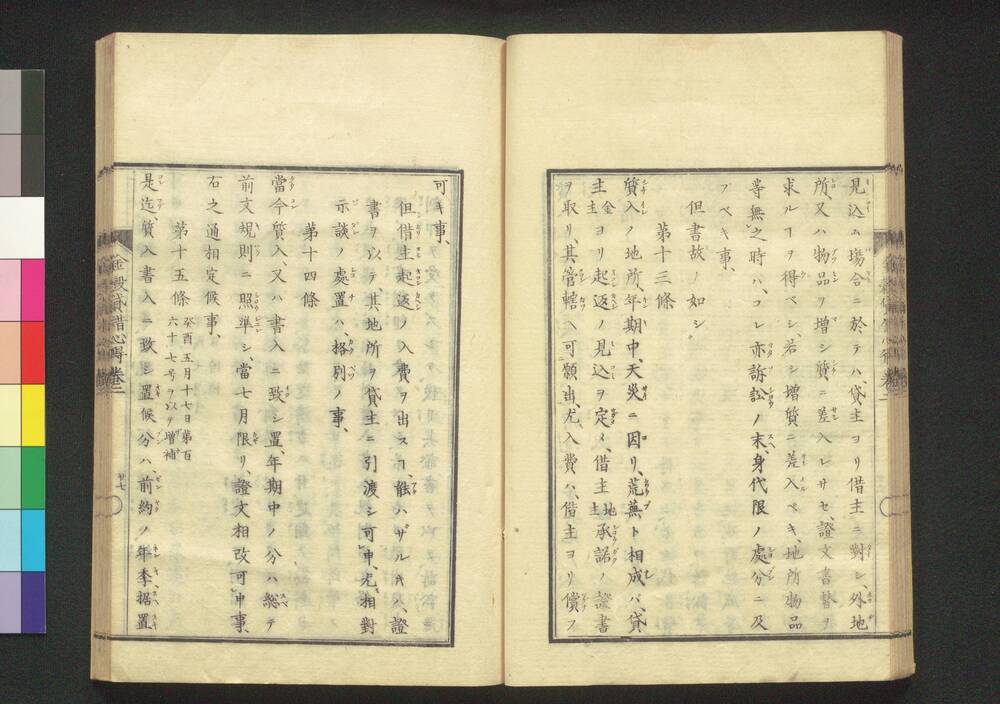 見込ム塲合ニ於テハ、貸主ヨリ借主ニ對シ、外地
所、又ハ物品ヲ增シ質ニ差入レサセ、證文書替ヲ
求ルヿヲ得ベシ、若シ增質ニ差入ベキ、地所物品
等無之時ハ、コレ亦訴訟ノ末、身代限ノ處分ニ及
フベキ事、
但書故ノ如シ
第十三條
質入ノ地所、年期中、天災ニ因リ、荒蕪ト相成バ、貸
主金主ヨリ起返ノ見込ヲ定メ、借主地主承諾ノ證書
ヲ取リ、其管轄ヘ可願出、尤、入費ハ、借主ヨリ償フ
可キ事、
但借主起返ノ入費ヲ出スヿ、能ハザルキハ、證
書ヲ以テ、其地所ヲ貸主ニ引渡シ可申、尤、相對
示談ノ處置ハ、格別ノ事、
第十四條
當今質入、又ハ書入ニ致シ置、年期中ノ分ハ総テ
前文規則ニ照準シ、當七月限リ、證文相改可申事、
右之通相定候事、
第十五條 癸酉五月十七日第百六十七号ヲ以テ增補
是迄、質入書入ニ致シ置候分ハ、前約ノ年季据置
金穀貸借心得 卷二
廿七